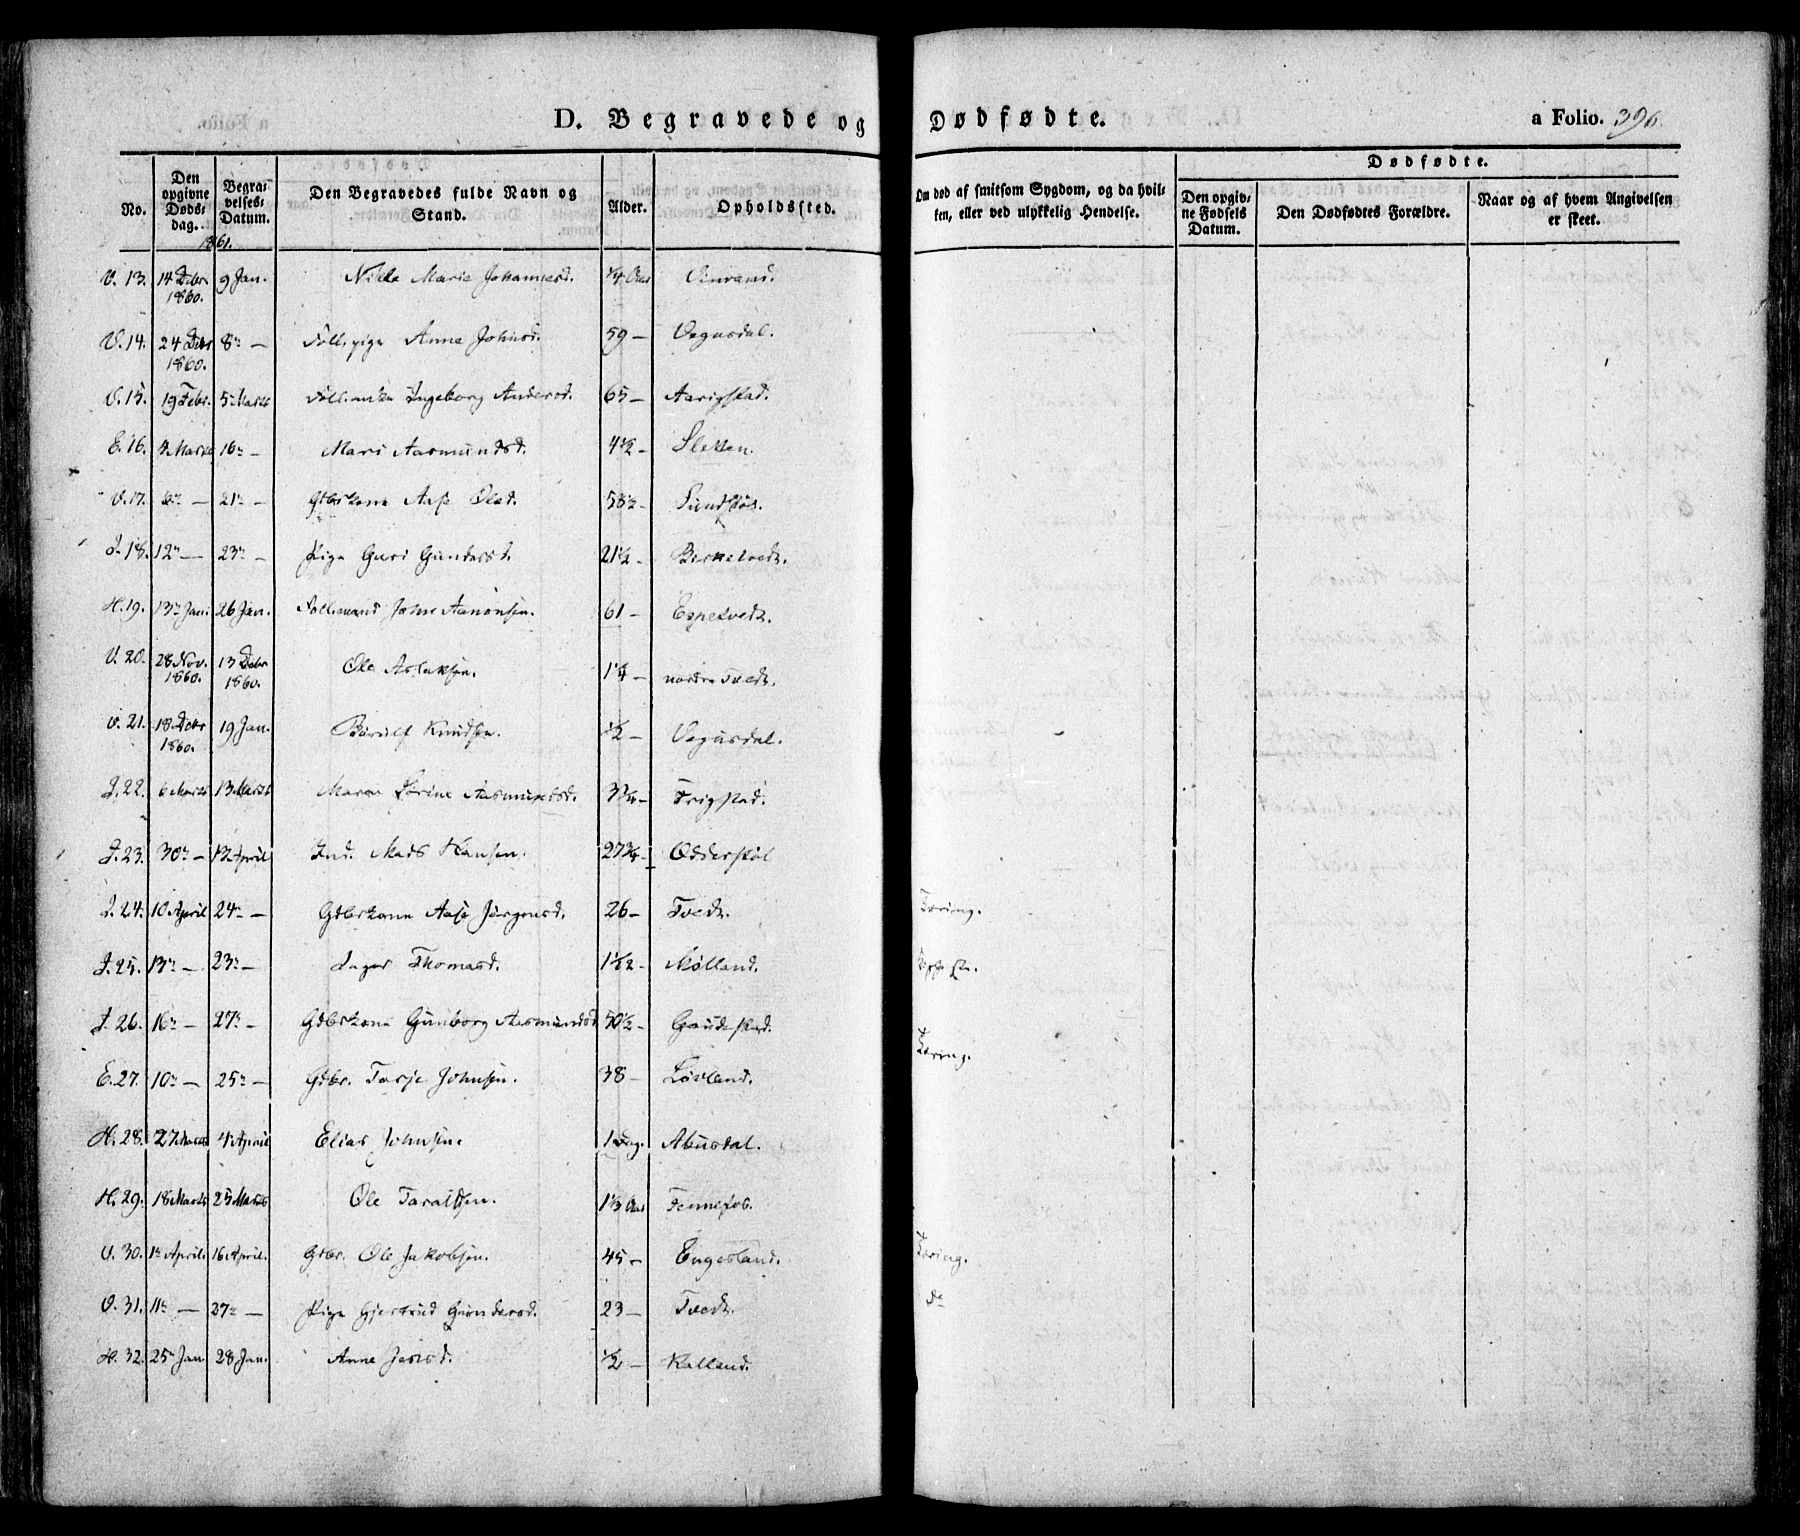 D. Begravede og Dødfødte.
a Folio. 396.
No.
Den opgivne Døds: dag.
Begra: velses: Datum.
Den Begravedes fulde Navn og Stand.
Alder.
Opholdssted.
Om død af smitsom Sygdom, og da hvil: ken, eller ved ulykkelig Hendelse.
Dødfødte.
Den opgiv: ne Fødsels Datum.
Den Dødfødtes Forældre.
Naar og af hvem Angivelsen er skeet.
1861.
V. 13. 14 Debr 1860. 9 Jan. Nille Marie Johannesd. 1/4 Aar
V. 14. 24 Debr 1860. 8de — Anne Johnsd. 59 — Vegusdal.
V. 15. 19 Febr. 5te Marts Ingeborg Andersd. 65 — Aarigstad.
E. 16. 4 Marts 16de — Mari Aasmundsd. 4 1/2 — Sletten.
V. 17. 6te — 21de — Gbrkone Aase Olsd. 58 1/2 — Sundstøl.
I. 18. 12te — 23de — Pige Guri Gundersd. 21 1/2 — Birketvedt.
H. 19. 13de Jan. 26 Jan. Follmand John Aanonsen. 61 — Espetvedt.
V. 20. 28 Nov. 1860. 13 Debr 1860. Ole Aslaksen. 1 1/4 — nordre Tvedt.
V. 21. 18 Debr 1860. 19 Jan. Børulf Knudsen. 1/2 — Vegusdal.
I. 22. 6 Marts 13 Marts Maren Aasmundsd. 3 3/4 — Frigstad.
I. 23. 30te — 13 April Ind. Mads Hansen. 27 3/4 — Odderstøl
I. 24. 10 April 24de — Gbrkone Aase Jørgensd. 26 — Tvedt. Tæring.
I. 25. 13de — 23de — Inger Thomasd. 1 1/2 — Mølland.
I. 26. 16de — 27de — Gbrkone Gunborg Aasmundsd. 50 1/2 — Gaudestad. Tæring.
E. 27. 10de — 25de — Gbr. Tarje Johnsen. 38 — Løvland.
H. 28. 27 Marts 4 April Elias Johnsen. 1 Dag. Abusdal.
H. 29. 18 Marts 25 Marts Ole Taraldsen. 1 1/3 Aar Fennefos.
V. 30. 1te April. 16 April. Gbr. Ole Jakobsen. 45 — Engesland. Tæring.
V. 31. 11te — 27de — Pige Gjertrud Gundersd. 23 — Tvedt. do
H. 32. 25de Jan. 28 Jan. Anne Jensd. 1/2 — Kalland.